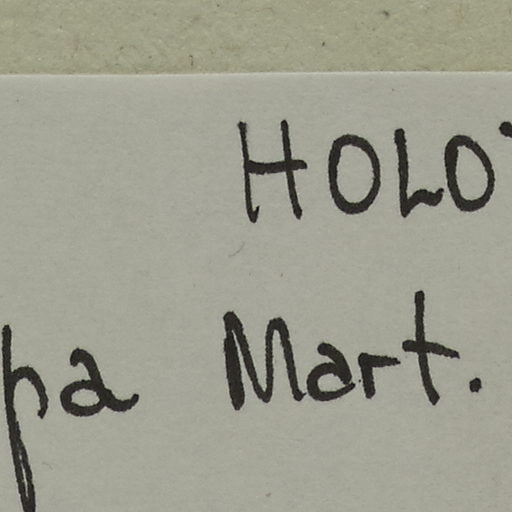 HOLO
pa Mart.